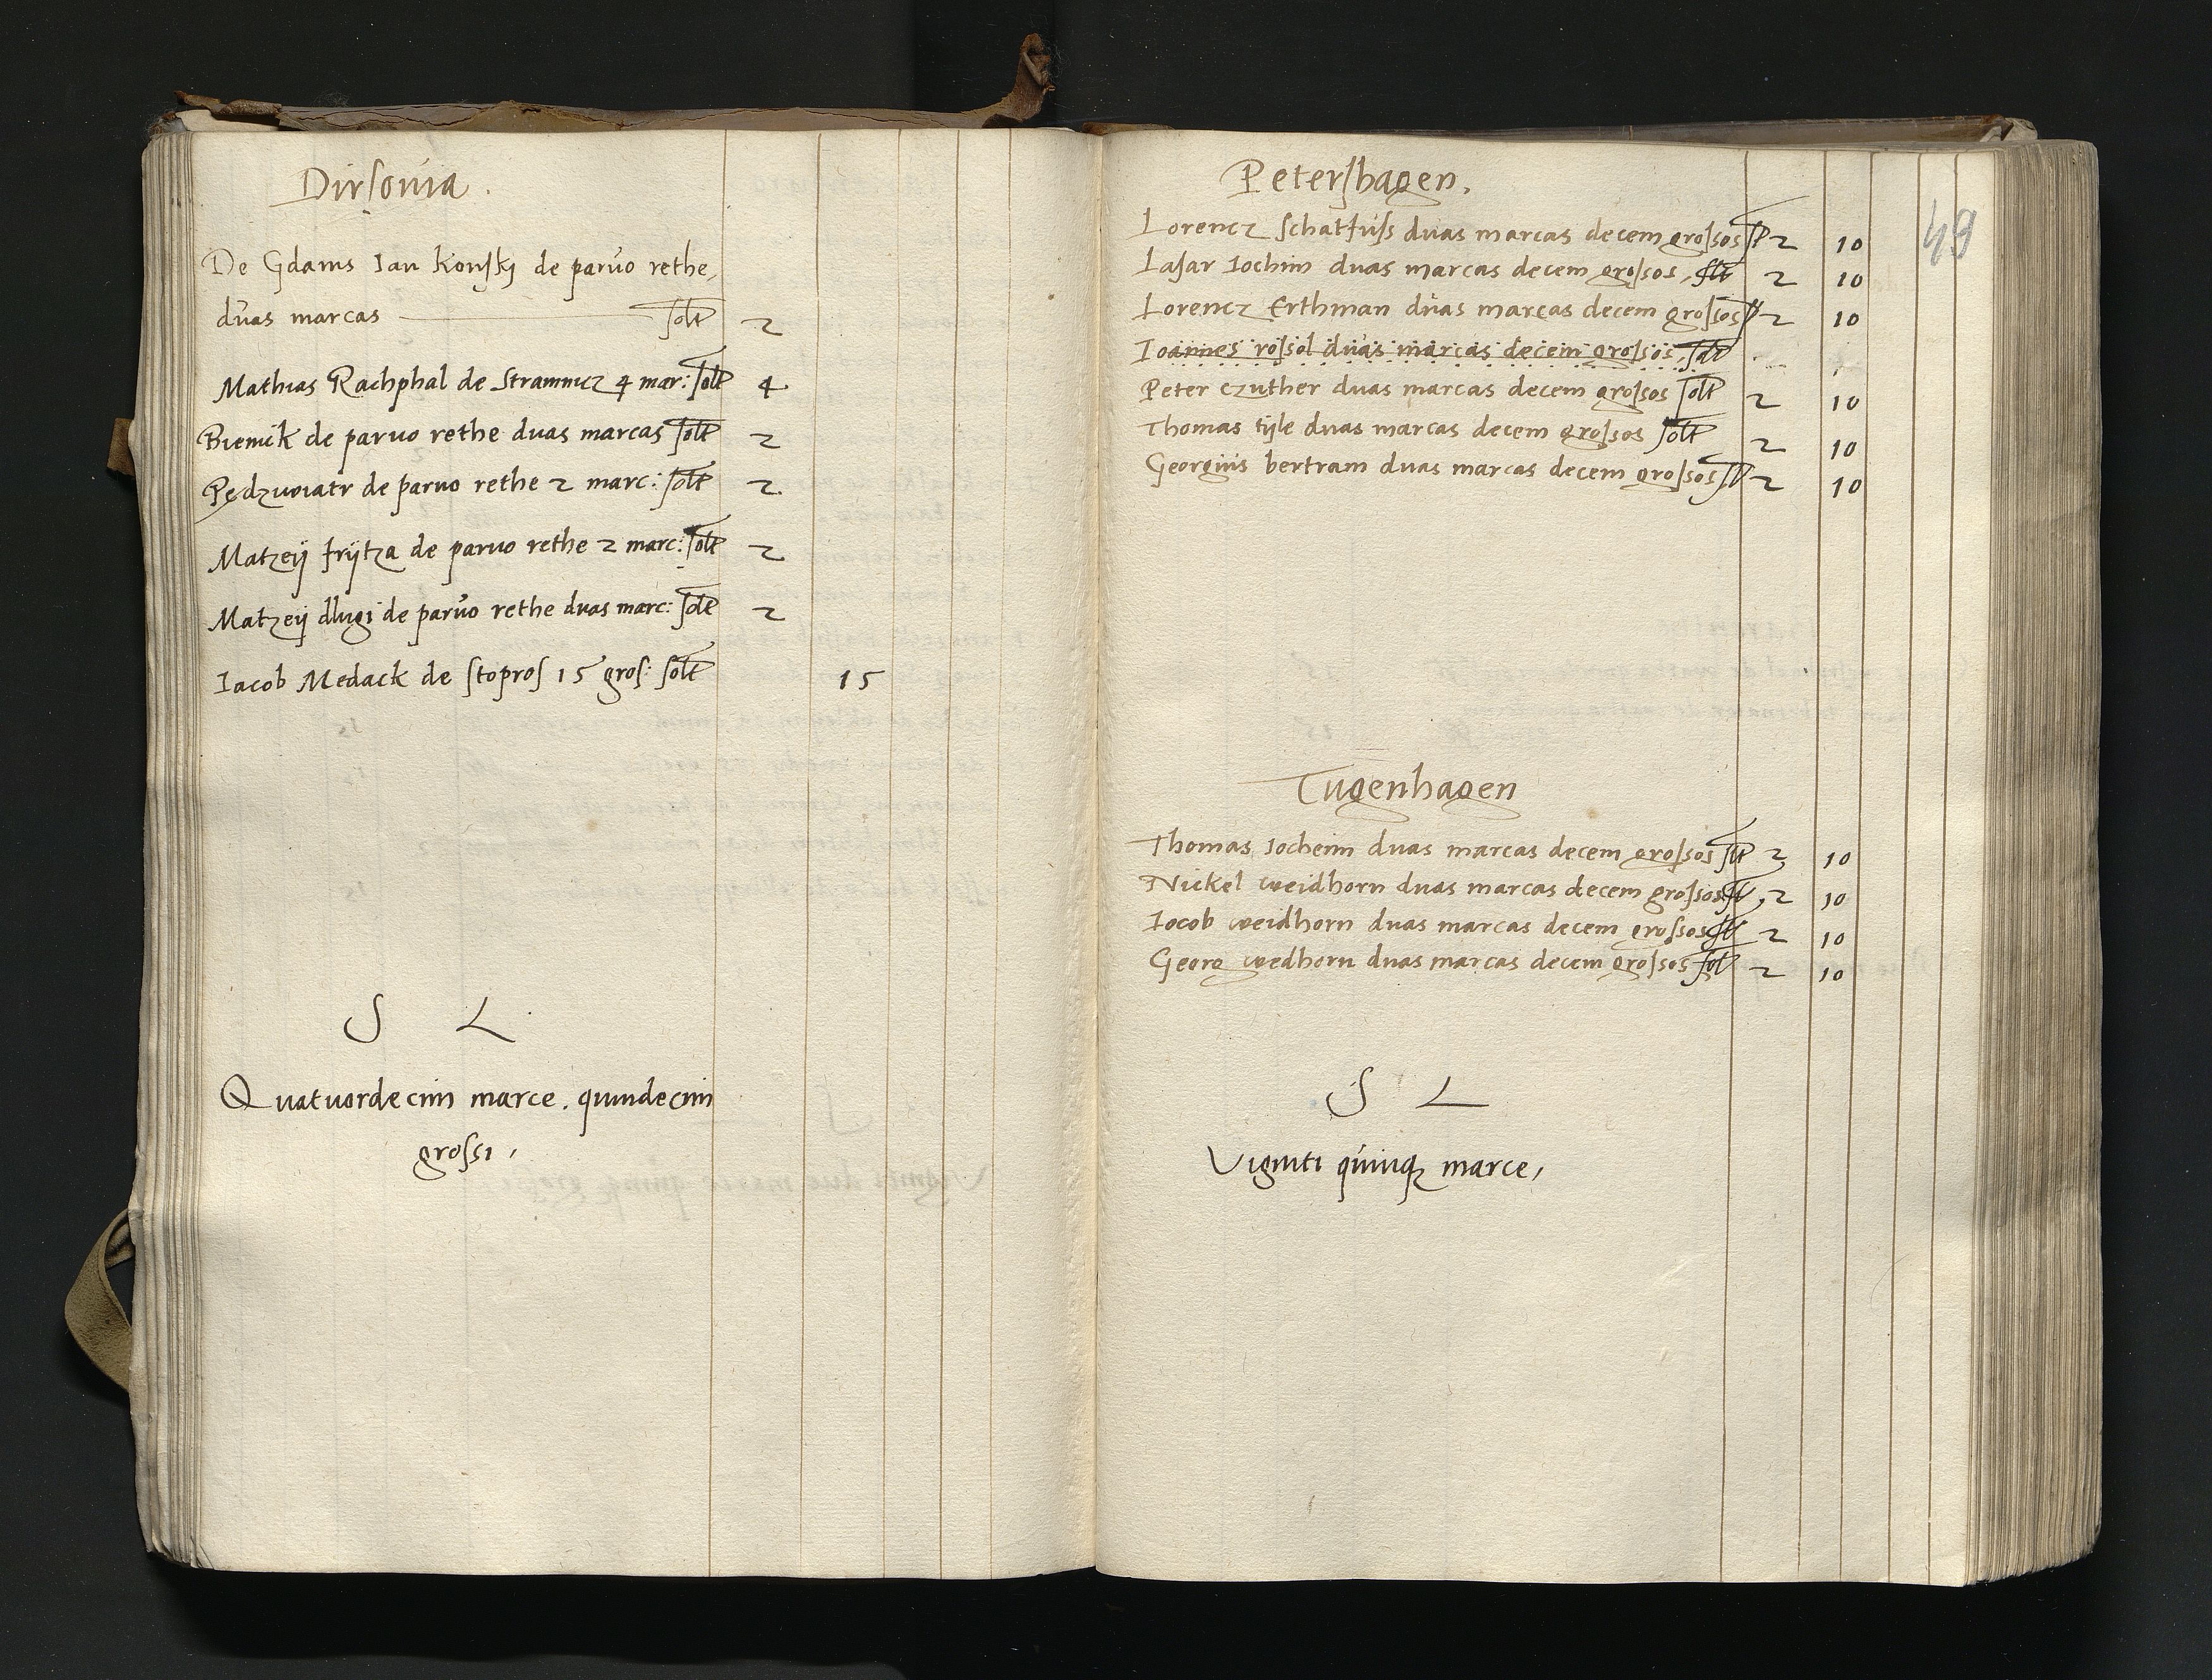 Dirsovia.
De Gdanis Ian Konskj de parvo rethe,
duas marcas solt 2
Mathias Rachphal de Stramnicz 4 mar: solt 4
Biemik de parvo rethe duas marcas solt 2
Pędzwiatr de parvo rethe 2 marc: solt 2
Matzeij frijtza de parvo rethe 2 marc: solt 2
Matzeij dlugi de parvo rethe duas marc: solt 2
Iacob Medack de stopros 15 gros: solt 15
S L
Quatuordecim marce. quindecim
grossi,
49
Petershagen.
Lorencz schatfuss duas marcas decem grossos slt 2 10
Lasar Iochim duas marcas decem grossos, slt 2 10
Lorencz Erthman duas marcas decem grossos slt 2 10
Ioannes rossol duas marcas decem grossos, solt
Peter czuther duas marcas decem grossos solt 2 10
Thomas tijle duas marcas decem grossos solt 2 10
Georgius bertram duas marcas decem grossos slt 2 10
Tugenhagen
Thomas Iocheim duas marcas decem grossos slt 2 10
Nickel weidhorn duas marcas decem grossos slt, 2 10
Iocob weidhorn duas marcas decem grossos slt 2 10
Georg wedhorn duas marcas decem grossos solt 2 10
S L
Viginti quinq marce,